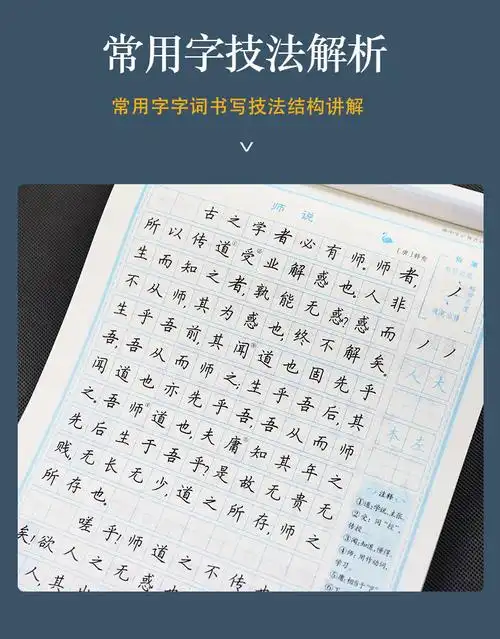 常用字技法解析
常用字字词书写技法结构讲解
师说
[唐]韩愈
古之学者必有师。师者，
所以传道①受②业解惑也。人非
生而知之者，孰能无惑？惑而
不从师，其为惑也，终不解矣。
生乎吾前，其闻③道也固先乎
吾，吾从而师之；生乎吾后，其
闻道也亦先乎吾，吾从而师
之。吾师④道也，夫庸⑤知其年之
先后生于吾乎？是故无贵无
贱，无长无少，道之所存，师之
所存也。
嗟乎！师道之不传也
矣！欲人之无惑也
人，其出
人 大
本 左
注释：
①道：学说，主张。
②受：同“授”，
传授。
③闻：知道，懂得。
④师：用作动词，
学习。